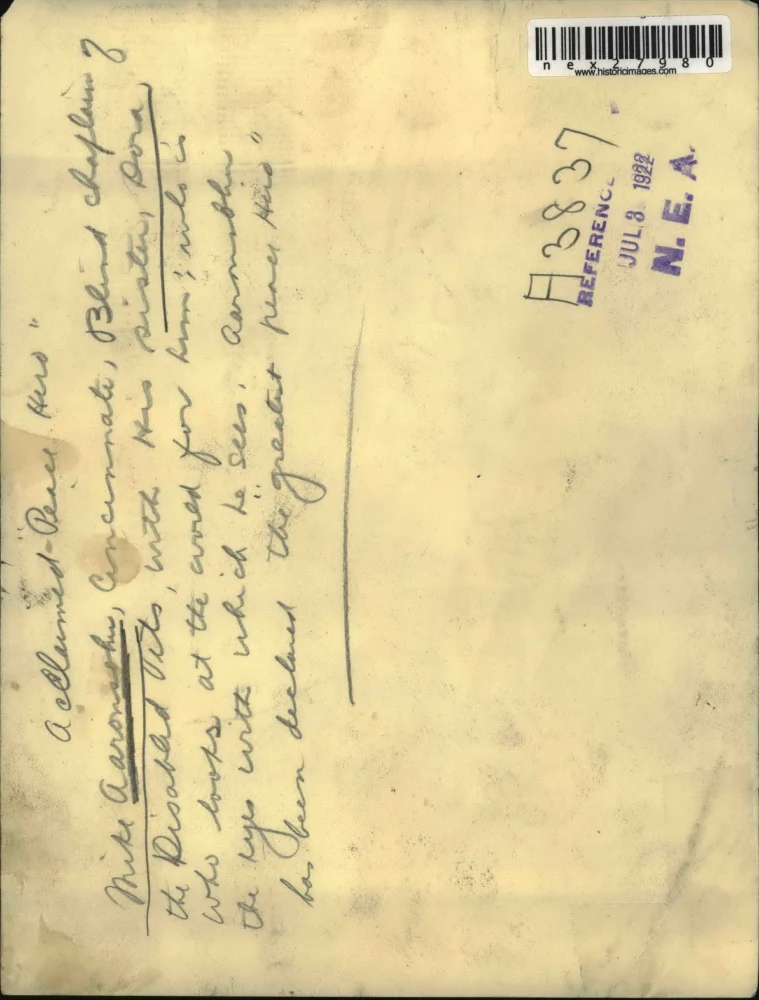 Acclaimed "Peace Hero"
Mike Aaronsohn, Cincinnati, Blind chaplain of
the Disabled Vets, with His sister, Dora,
who looks at the world for him; who is
the eyes with which he sees. Aaronsohn
has been declared "the greatest peace Hero"
A 3837
REFERENCE
JUL 3 1922
N. E. A.
nex27980
www.historicimages.com